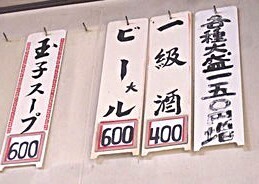 各種大盛一五〇円増
一級酒
400
ビール大
600
玉子スープ
600